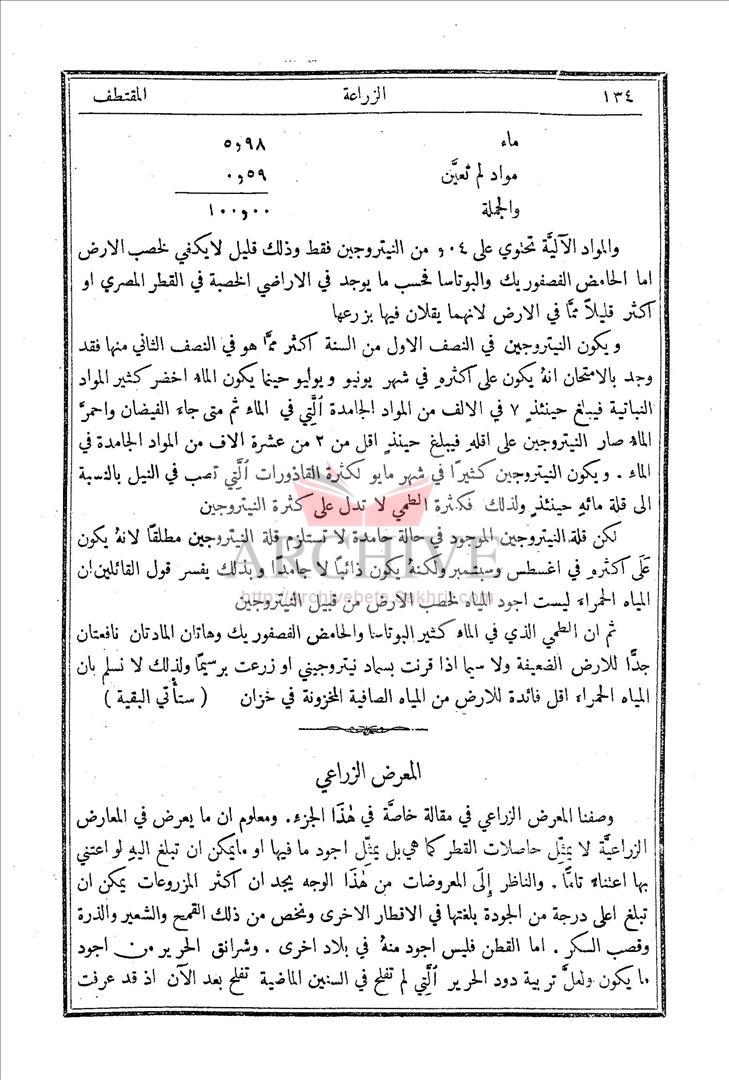 ١٣٤ الزراعة المقتطف
ماء ٥,٩٨
مواد لم تعيَّن ٠,٥٩
والجملة ١٠٠,٠٠
والمواد الآليَّة تحتوي على ٠٤, من النيتروجين فقط وذلك قليل لا يكفي لخصب الارض
اما الحامض الفصفوريك والبوتاسا فحسب ما يوجد في الاراضي الخصبة في القطر المصري او
اكثر قليلاً ممَّا في الارض لانهما يقلان فيها بزرعها
ويكون النيتروجين في النصف الاول من السنة اكثر ممَّا هو في النصف الثاني منها فقد
وجد بالامتحان انهُ يكون على اكثرهِ في شهر يونيو ويوليو حينما يكون الماء اخضر كثير المواد
النباتية فيبلغ حينئذٍ ٧ في الالف من المواد الجامدة الَّتي في الماء ثم متى جاء الفيضان واحمرَّ
الماء صار النيتروجين على اقلهِ فيبلغ حينئذٍ اقل من ٢ من عشرة الاف من المواد الجامدة في
الماء . ويكون النيتروجين كثيرًا في شهر مايو لكثرة القاذورات الَّتي تصب في النيل بالنسبة
الى قلة مائهِ حينئذٍ ولذلك فكثرة الطمي لا تدل على كثرة النيتروجين
لكن قلة النيتروجين الموجود في حالة جامدة لا تستلزم قلة النيتروجين مطلقًا لانهُ يكون
عَلَى اكثرهِ في اغسطس وسبتمبر ولكنهُ يكون ذائبًا لا جامدًا وبذلك يفسر قول القائلين ان
المياه الحمراء ليست اجود المياه لخصب الارض من قبيل النيتروجين
ثم ان الطمي الذي في الماء كثير البوتاسا والحامض الفصفوريك وهاتان المادتان نافعتان
جدًّا للارض الضعيفة ولا سيما اذا قرنت بسماد نيتروجيني او زرعت برسيمًا ولذلك لا نسلم بان
المياه الحمراء اقل فائدة للارض من المياه الصافية المخزونة في خزان ( ستأتي البقية )
المعرض الزراعي
وصفنا المعرض الزراعي في مقالة خاصَّة في هٰذا الجزء . ومعلوم ان ما يعرض في المعارض
الزراعيَّة لا يمثِّل حاصلات القطر كما هي بل يمثِّل اجود ما فيها او ما يمكن ان تبلغ اليهِ لو اعتني
بها اعتناء تامًّا . والناظر إِلَى المعروضات من هٰذا الوجه يجد ان اكثر المزروعات يمكن ان
تبلغ اعلى درجة من الجودة بلغتها في الاقطار الاخرى ونخص من ذلك القمح والشعير والذرة
وقصب السكر . اما القطن فليس اجود منهُ في بلاد اخرى . وشرانق الحرير من اجود
ما يكون ولعلَّ تربية دود الحرير الَّتي لم تفلح في السنين الماضية تفلح بعد الآن اذ قد عرفت
ARCHIVE
http://Archivebeta.Sakhrit.com